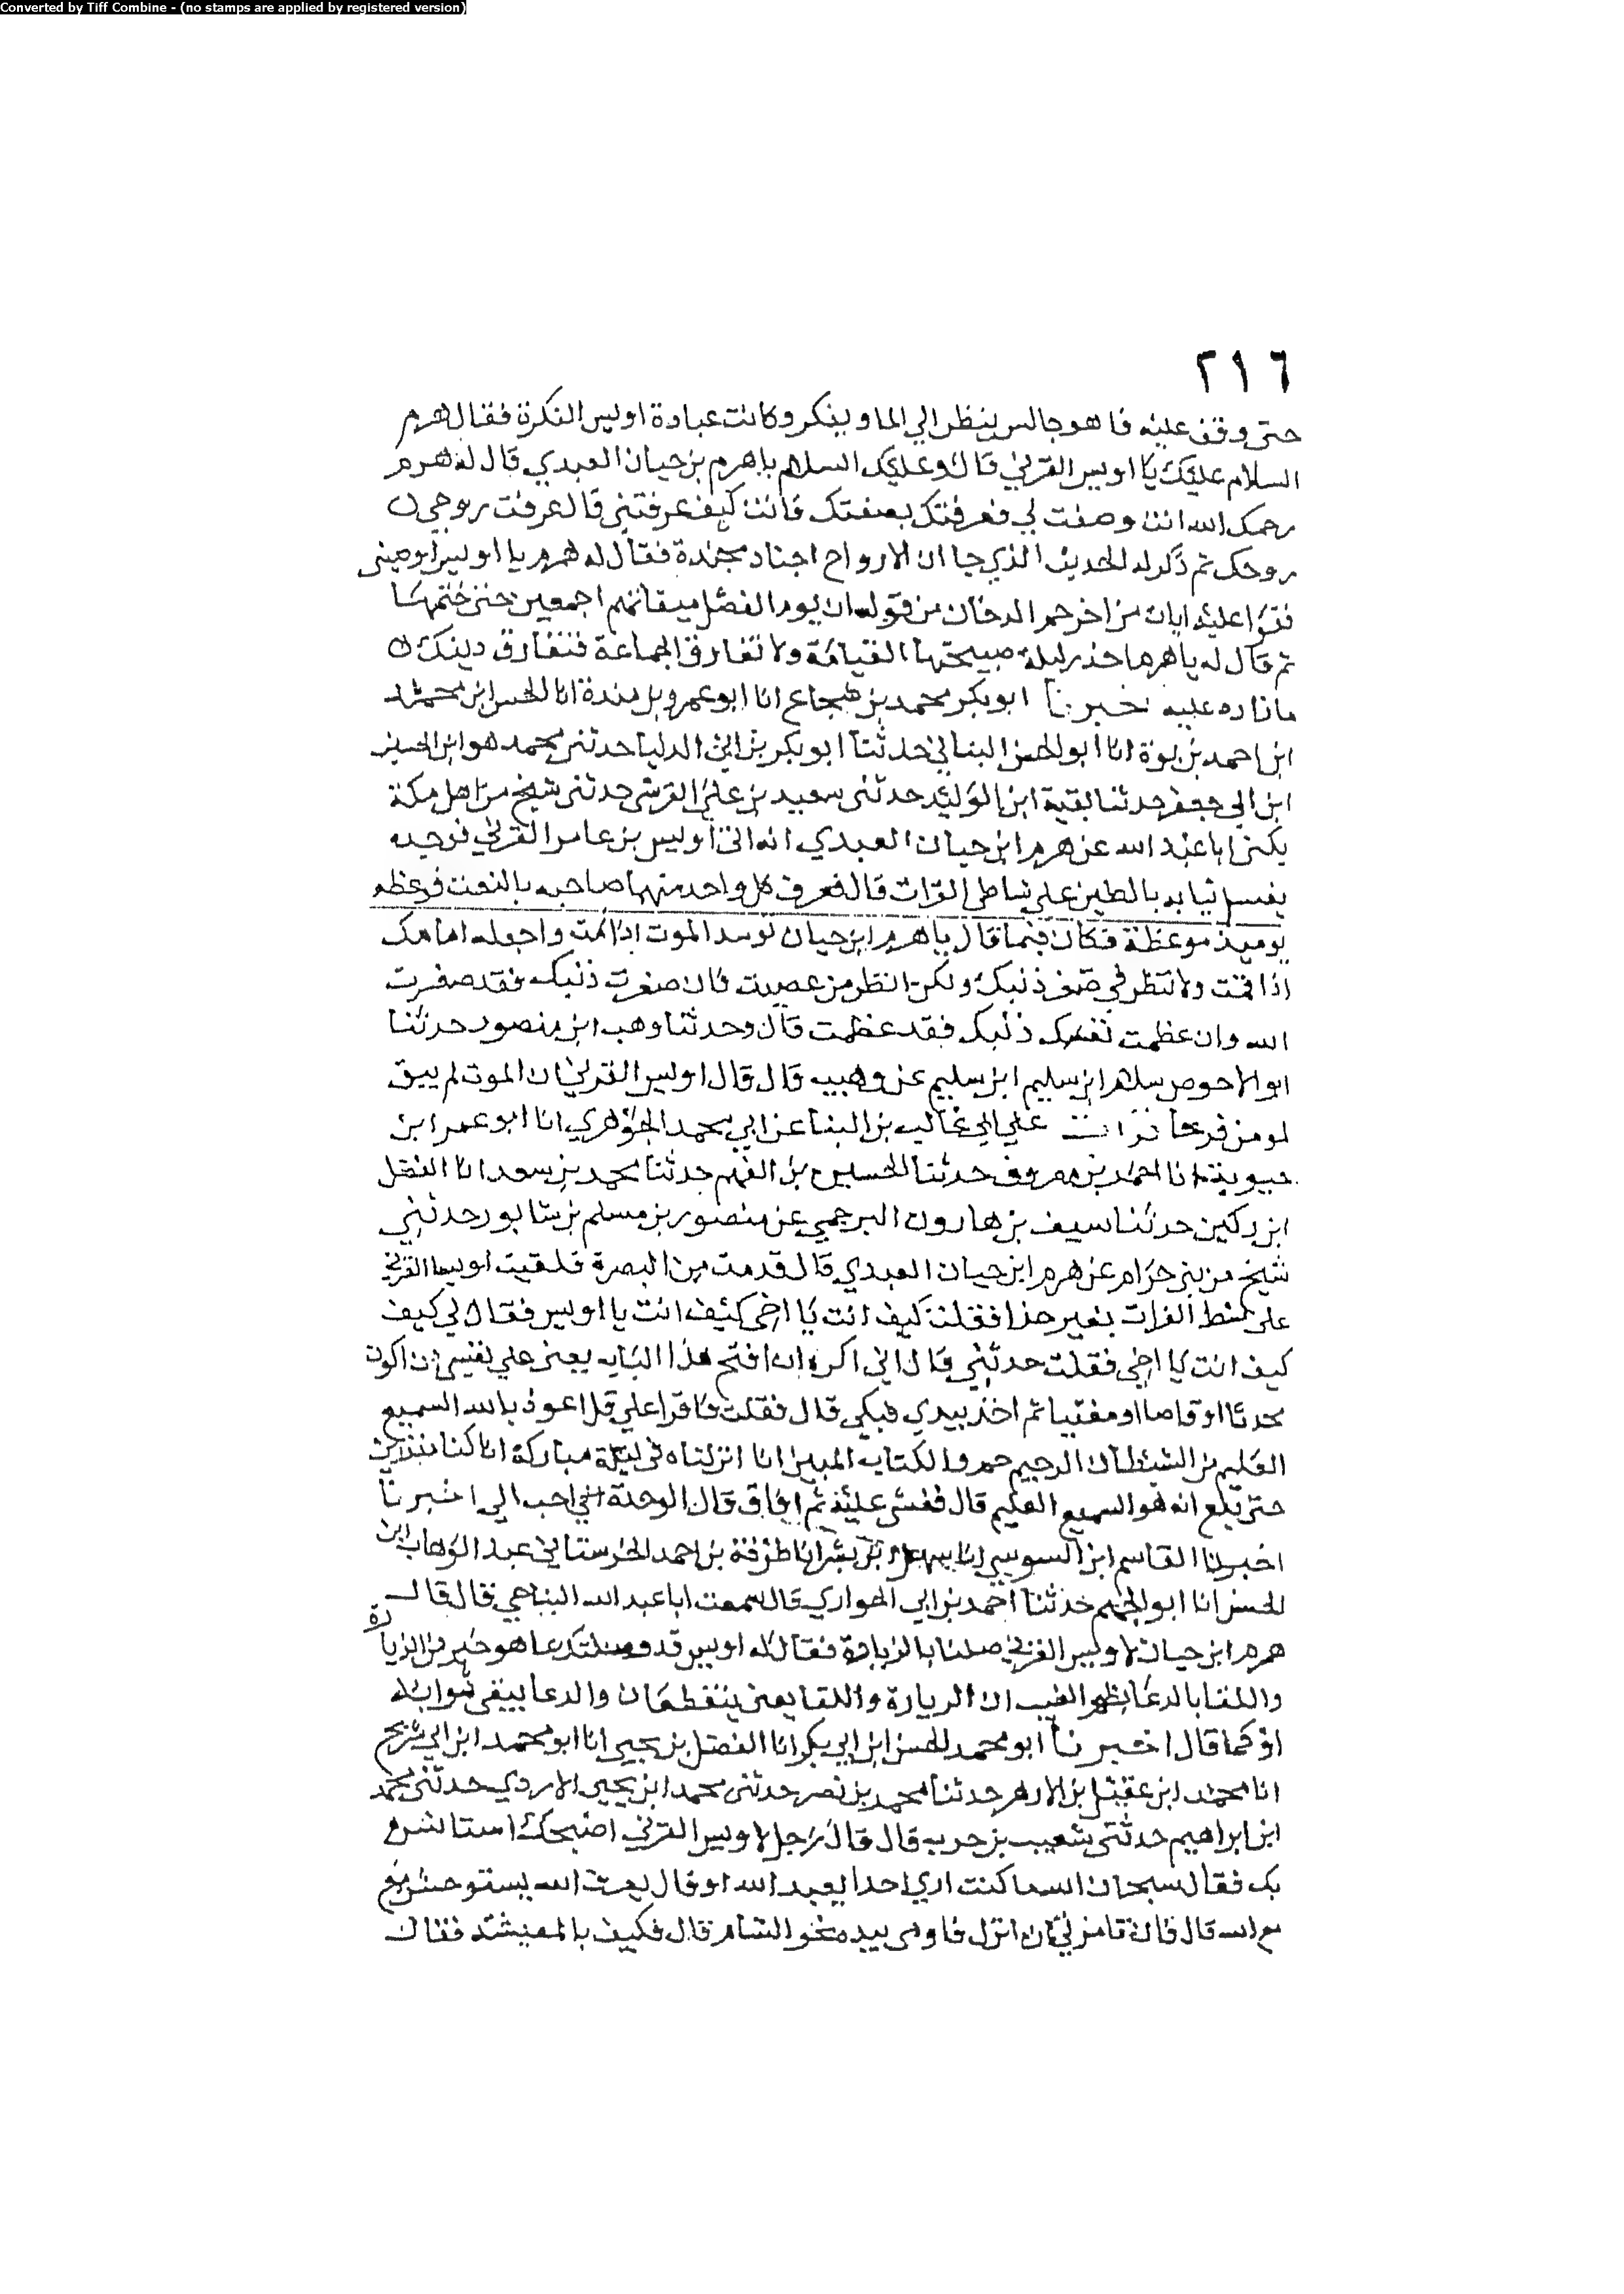 Converted by Tiff Combine - (no stamps are applied by registered version)
٢١٦
حتى وقف عليه فا هو جالس ينظر الي الما ويفكر وكانت عبادة اويس الفكرة فقال هرم
السلام عليك يا اويس القرني قال وعليك السلام يا هرم بن حيان العبدي قال له هرم
رحمك الله انت وصفت لي فعرفتك بصفتك فانت كيف عرفتني قال عرفت روحي
روحك ثم ذكر له الحديث الذي جا ان الارواح اجناد مجندة فقال له هرم يا اويس اوصيني
فقرا عليه ايات من اخر حم الدخان من قوله ان يوم الفصل ميقاتهم اجمعين حتى ختمها
ثم قال له يا هرم احذر ليلة صبيحتها القيامة ولا تفارق الجماعة فتفارق دينك
ابو بكر محمد بن شجاع انا ابو عمرو بن مندة انا الحسن ابن محمد
ابن احمد بن يوة انا ابو الحسن البناني حدثنا ابو بكر بن ابي الدنيا حدثني محمد هو ابن الحسين
ابن ابي جعفر حدثنا بقية ابن الوليد حدثني سعيد بن علي القرشي حدثني شيخ من اهل مكة
يكنى ابا عبد الله عن هرم ابن حيان العبدي انه اتى اويس بن عامر القرني فوجده
يغسل ثيابه بالطين علي شاطى الفرات قال فعرف كل واحد منهما صاحبه بالنعت فوعظه
يوميذ موعظة فكان فيما قال يا هرم ابن حيان توسد الموت اذا نمت واجعله امامك
اذا قمت ولا تنظر في صغر ذنبك ولكن انظر من عصيت فان صغرت ذنبك فقد صغرت
الله وان عظمت ذنبك فقد عظمت قال وحدثنا وهب ابن منصور حدثنا
ابو الاحوص سلام ابن سليم ابن سليم عن وهيب قال قال اويس القرني ان الموت لم يبق
لمومن فرحا قرات علي ابي غالب بن البنا عن ابي محمد الجوهري انا ابو عمر ابن
حيوية انا احمد بن معروف حدثنا الحسين بن الفهم حدثنا محمد بن سعد انا الفضل
ابن دكين حدثنا سيف بن هارون البرجمي عن منصور بن مسلم بن سابور حدثني
شيخ من بني حرام عن هرم ابن حيان العبدي قال قدمت من البصرة فلقيت اويسا القرني
على شط الفرات بغير حذا فقلت كيف انت يا اخى كيف انت يا اويس فقال لي كيف
كيف انت يا اخى فقلت حدثني قال اني اكره ان افتح هذا الباب يعنى علي نفسي ان اكون
محدثا او قاصا او مفتيا ثم اخذ بيدي فبكى قال فقلت فاقرا علي قل اعوذ بالله السميع
العليم من الشيطان الرجيم حم والكتاب المبين انا انزلناه في ليلة مباركة انا كنا منذرين
حتى بلغ انه هو السميع العليم قال فغشى عليه ثم افاق قال الوحدة احب الي اخبرنا
اخبرنا القاسم ابن السوسي انا سهل بن بشر انا طرفة بن احمد الخرستاني عبد الوهاب ابن
الحسن انا ابو الجهم حدثنا احمد بن ابي الحواري قال سمعت ابا عبد الله النباجي قال قال
هرم ابن حيان لاويس القرني صلنا بالزيارة فقال له اويس قد وصلتك بما هو خير من الزيارة
واللقا بالدعا بظهر الغيب ان الزيارة واللقا يعني ينقطعان والدعا يبقى ثوابه
او كما قال اخبرنا ابو محمد الحسن ابن ابي بكر انا الفضل بن يحيى انا ابو محمد ابن ابي شريح
انا محمد ابن عقيل بن الازهر حدثنا محمد بن نصر حدثني محمد ابن يحيى الازدي حدثني محمد
ابن ابراهيم حدثني شعيب بن حرب قال قال رجل لاويس القرني اصحبك استانس
بك فقال سبحان الله ما كنت ارى احدا يعبد الله او قال يعرف الله يستوحش مع
مع الله قال فاين تامرني ان انزل فاومى بيده نحو الشام قال فكيف بالمعيشة فقال